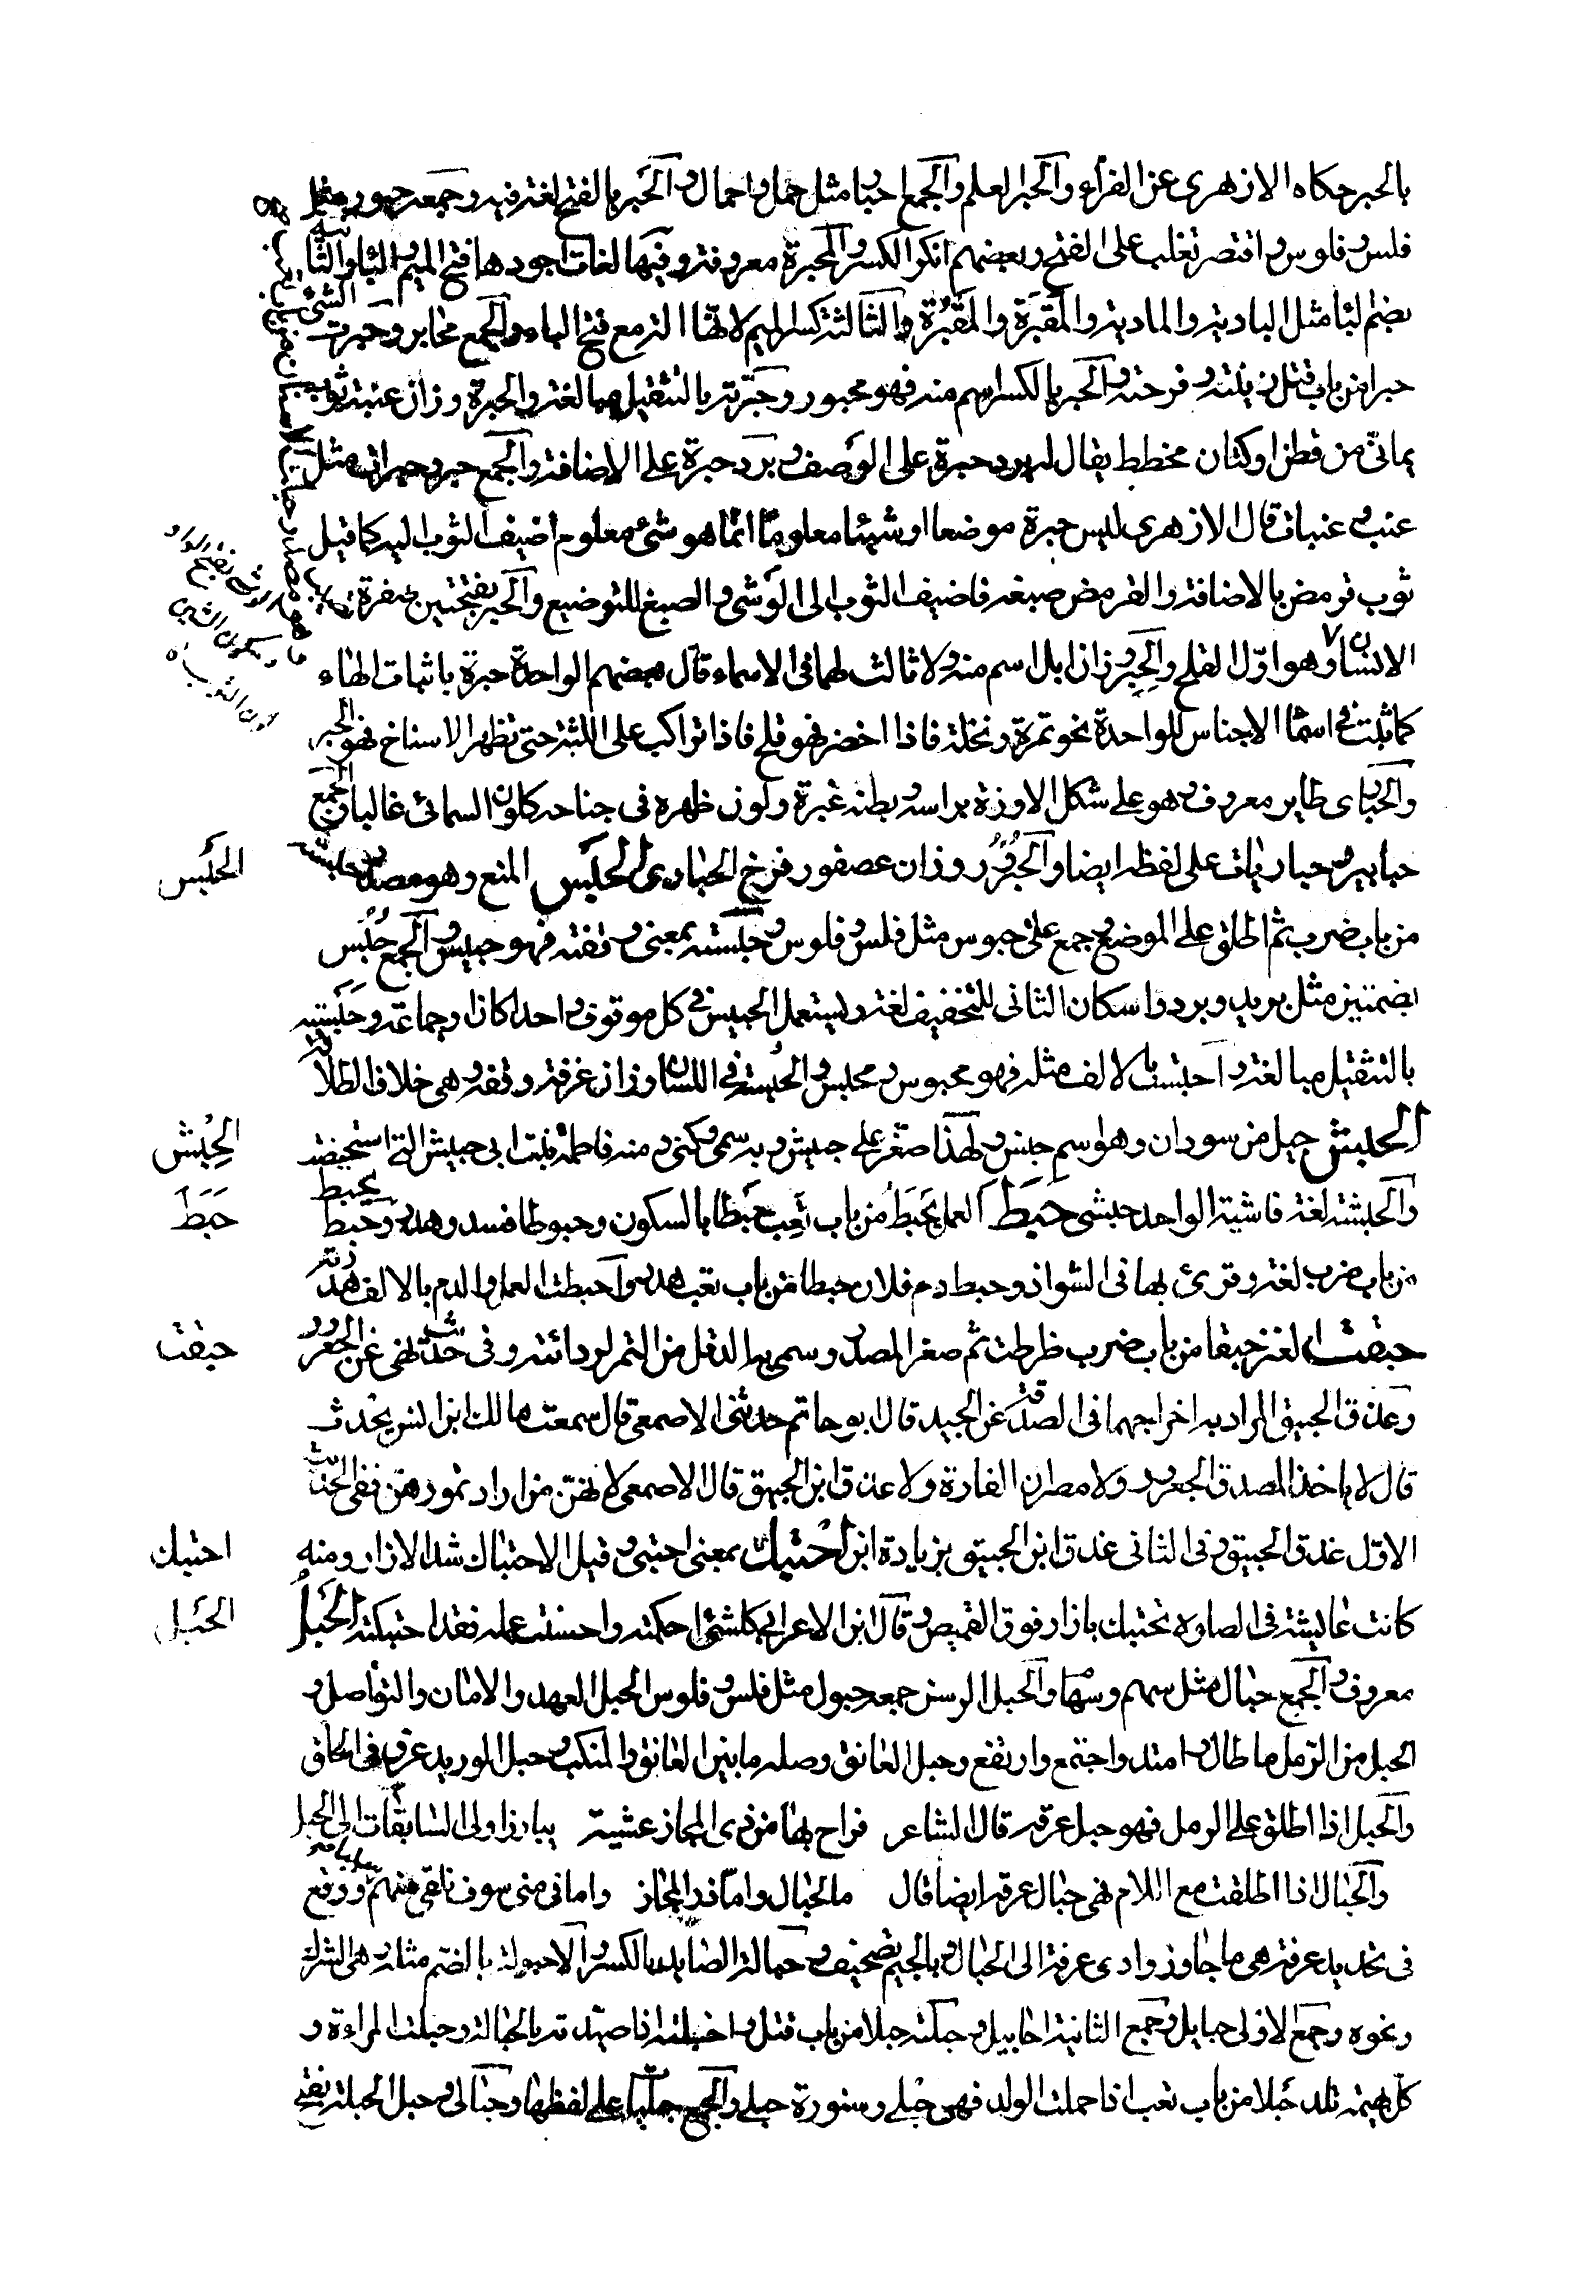 بالحبر حكاه الازهرى عن الفراء والحبر العلم والجمع احبار مثل حمل واحمال والحبر بالفتح لغة فيه وجمعه حبور مثل
فلس وفلوس واقتصر ثعلب على الفتح وبعضهم انكر الكسر والمحبرة معروفة وفيها لغات اجودها فتح الميم والباء والثانية
بضم الباء مثل المادبة والمادبة والمقبرة والمقبرة والثالثة كسر الميم لانها الة مع فتح الباء والجمع محابر وحبرت الشئ
حبرا من باب قتل زينته وفرحته والحبر بالكسر اسم منه فهو محبور وحبرته بالتثقيل مبالغة والحبرة وزان عنبة ثوب
يمانى من قطن او كتان مخطط يقال له برد حبرة على الوصف وبرد حبرة على الاضافة والجمع حبر وحبرات مثل
عنب وعنبات قال الازهرى ليس حبرة موضعا او شيئا معلوما انما هو شئ معلوم اضيف الثوب اليه كما قيل
ثوب قرمز بالاضافة والقرمز صبغه فاضيف الثوب الى الوشى والصبغ للتوضيع والحبر بفتحتين صفرة تصيب
الاسنان وهو اول القلح والحبر وزان ابل اسم منه ولا ثالث لهما فى الاسماء قال بعضهم الواحدة حبرة باثبات الهاء
كما ثبت فى اسماء الاجناس للواحدة نحو تمرة ونخلة فاذا اخضر فهو قلح فاذا تراكب على اللثة حتى تظهر الاسناخ فهو الحبر
والحبارى طاير معروف وهو على شكل الاوزة براسه وبطنه غبرة ولون ظهره فى جناحه كلون السمانى غالبا والجمع
حبابير وحباريات على لفظه ايضا والحبرور وزان عصفور فرخ الحبارى الحبس المنع وهو مصدر حبسته
الحبس
من باب ضرب ثم اطلق على الموضع وجمع على حبوس مثل فلس وفلوس وحبسته بمعنى وقفته فهو حبيس والجمع حبس
بضمتين مثل بريد وبرد واسكان الثانى للتخفيف لغة ويستعمل الحبيس فى كل موقوف واحدا كان او جماعة وحبسته
بالتثقيل مبالغة واحبسته بالالف مثله فهو محبوس ومحبس والحبسة فى اللسان وزان غرفة وقفة وهى خلاف الطلاقة
الحبش جيل من سودان وهو اسم جنس ولهذا صغر على حبيش وبه سمى وكنى ومنه فاطمة بنت ابى حبيش التى استحيضت
الحبش
والحبشة لغة فاشية الواحد حبشى حبط العمل يحبط من باب تعب حبطا بالسكون وحبوطا فسد وهدر وحبط يحبط
حبط
من باب ضرب لغة وقرئ بها فى الشواذ وحبط دم فلان حبطا من باب تعب هدر واحبطت العمل والدم بالالف هدرته
حبقت العنز حبقا من باب ضرب ضرطت ثم صغر المصدر وسمى به الدقل من التمر لرداءته وفى حديث نهى عن الجعرور
حبقت
وعذق الحبيق المراد به اخراجهما فى الصدقة عن الجيد قال ابو حاتم حدثنى الاصمعى قال سمعت مالك ابن انس يحدث
قال لا ياخذ المصدق الجعرور ولا مصران الفارة ولا عذق ابن الحبيق قال الاصمعى لانهن من اردا تمورهم ففى الحديث
الاول عذق الحبيق وفى الثانى عذق ابن الحبيق بزيادة ابن احتبك بمعنى احتبى وقيل الاحتباك شد الازار ومنه
احتبك
كانت عايشة فى الصلوة تحتبك بازار فوق القميص وقال ابن الاعرابى كل شئ احكمته واحسنت عمله فقد احتبكته الحبل
الحبل
معروف والجمع حبال مثل سهم وسهام والحبل الرسن جمعه حبول مثل فلس وفلوس والحبل العهد والامان والتواصل و
الحبل من الرمل ما طال وامتد واجتمع وارتفع وحبل العاتق وصله ما بين العاتق والمنكب وحبل الوريد عرق فى الحلق
والحبل اذا اطلق على الرمل فهو حبل عرفة قال الشاعر فراح بها من ذى المجاز عشية يبادر اولى السابقات الى الحبل
والحبال اذا اطلقت مع اللام فهى حبال عرفة ايضا قال ما الحبال واما ذو المجاز واما فى منى سوف تلقى منهم سببا ووقع
فى تحديد عرفة هى ما جاوز وادى عرفة الى الحبال وبالجيم تصحيف وحبالة الصايد بالكسر والاحبولة بالضم مثله وهى الشرك
ونحوه وجمع الاولى حبايل وجمع الثانية احابيل وحبلته حبلا من باب قتل واحتبلته اذا صدته بالحبالة وحبلت المراءة و
كل بهيمة تلد حبلا من باب تعب اذا حملت الولد فهى حبلى وسنورة حبلى والجمع حبليات على لفظها وحبالى وحبل الحبلة بفتح